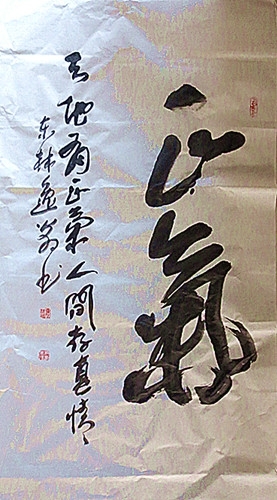 正氣
天地有正氣人間存真情
东林逸翁书